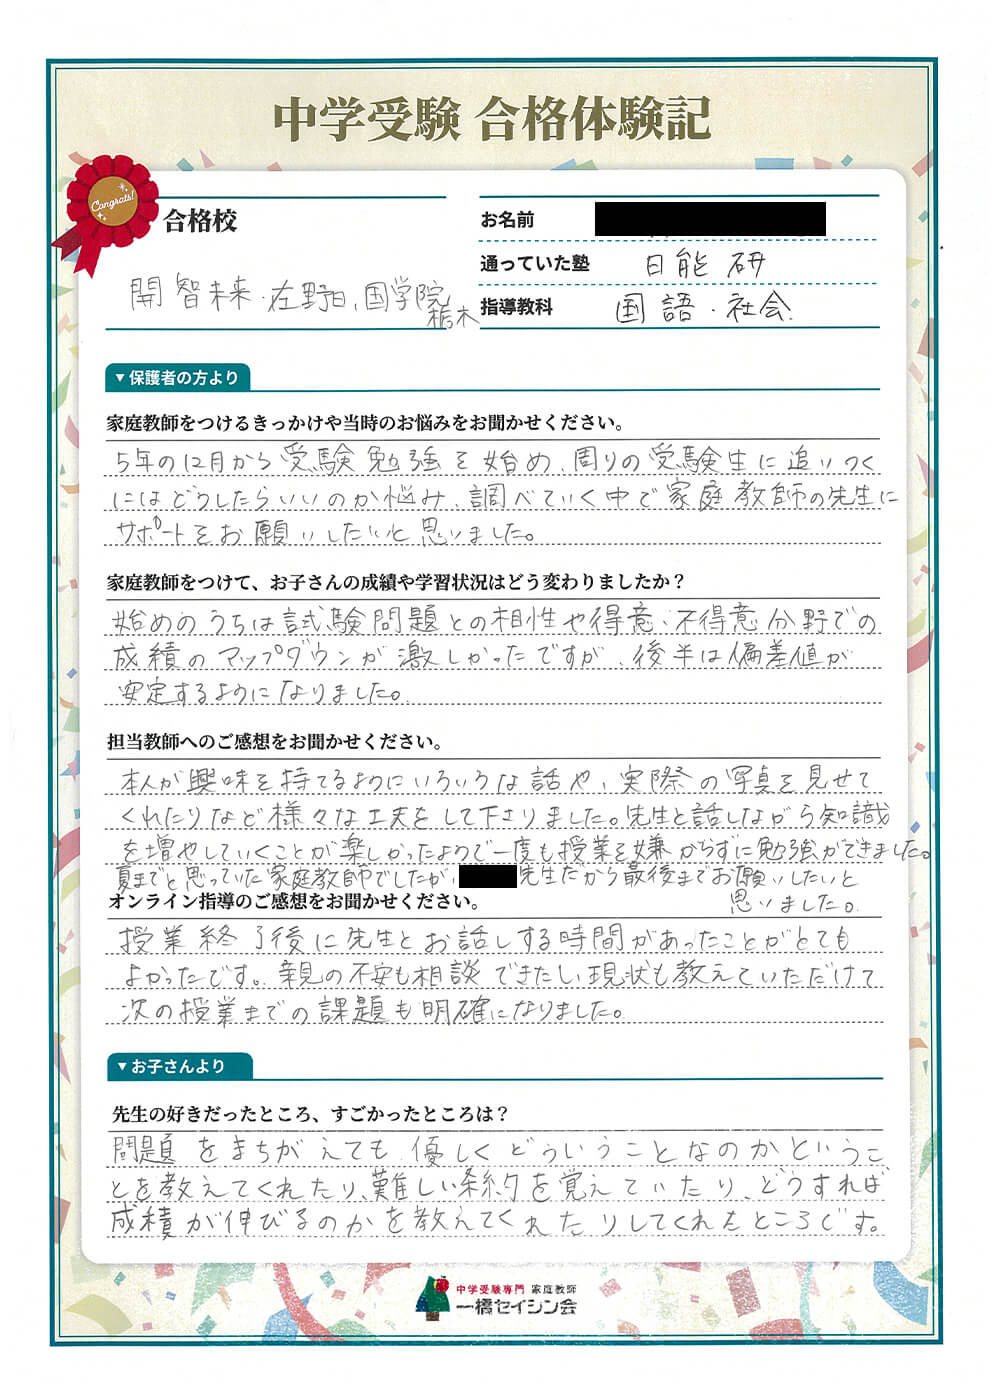 中学受験 合格体験記
Congrats!
合格校
開智未来・佐野日、国学院
栃木
お名前
通っていた塾 日能研
指導教科 国語・社会
▼保護者の方より
家庭教師をつけるきっかけや当時のお悩みをお聞かせください。
5年の12月から受験勉強を始め、周りの受験生に追いつく
にはどうしたらいいのか悩み、調べていく中で家庭教師の先生に
サポートをお願いしたいと思いました。
家庭教師をつけて、お子さんの成績や学習状況はどう変わりましたか？
始めのうちは試験問題との相性や得意・不得意分野での
成績のマップダウンが激しかったですが、後半は偏差値が
安定するようになりました。
担当教師へのご感想をお聞かせください。
本人が興味を持てるようにいろいろな話や、実際の写真を見せて
くれたりなど様々な工夫をして下さりました。先生と話しながら知識
を増やしていくことが楽しかったようで一度も授業を嫌がらずに勉強ができました。
夏までと思っていた家庭教師でしたが、先生だから最後までお願いしたいと
思いました。
オンライン指導のご感想をお聞かせください。
授業終了後に先生とお話しする時間があったことがとても
よかったです。親の不安も相談できたし現状も教えていただけて
次の授業までの課題も明確になりました。
▼お子さんより
先生の好きだったところ、すごかったところは？
問題をまちがえても優しくどういうことなのかというこ
とを教えてくれたり、難しい条約を覚えていたり、どうすれば
成積が伸びるのかを教えてくれたりしてくれたところです。
中学受験専門 家庭教師
一橋セイシン会